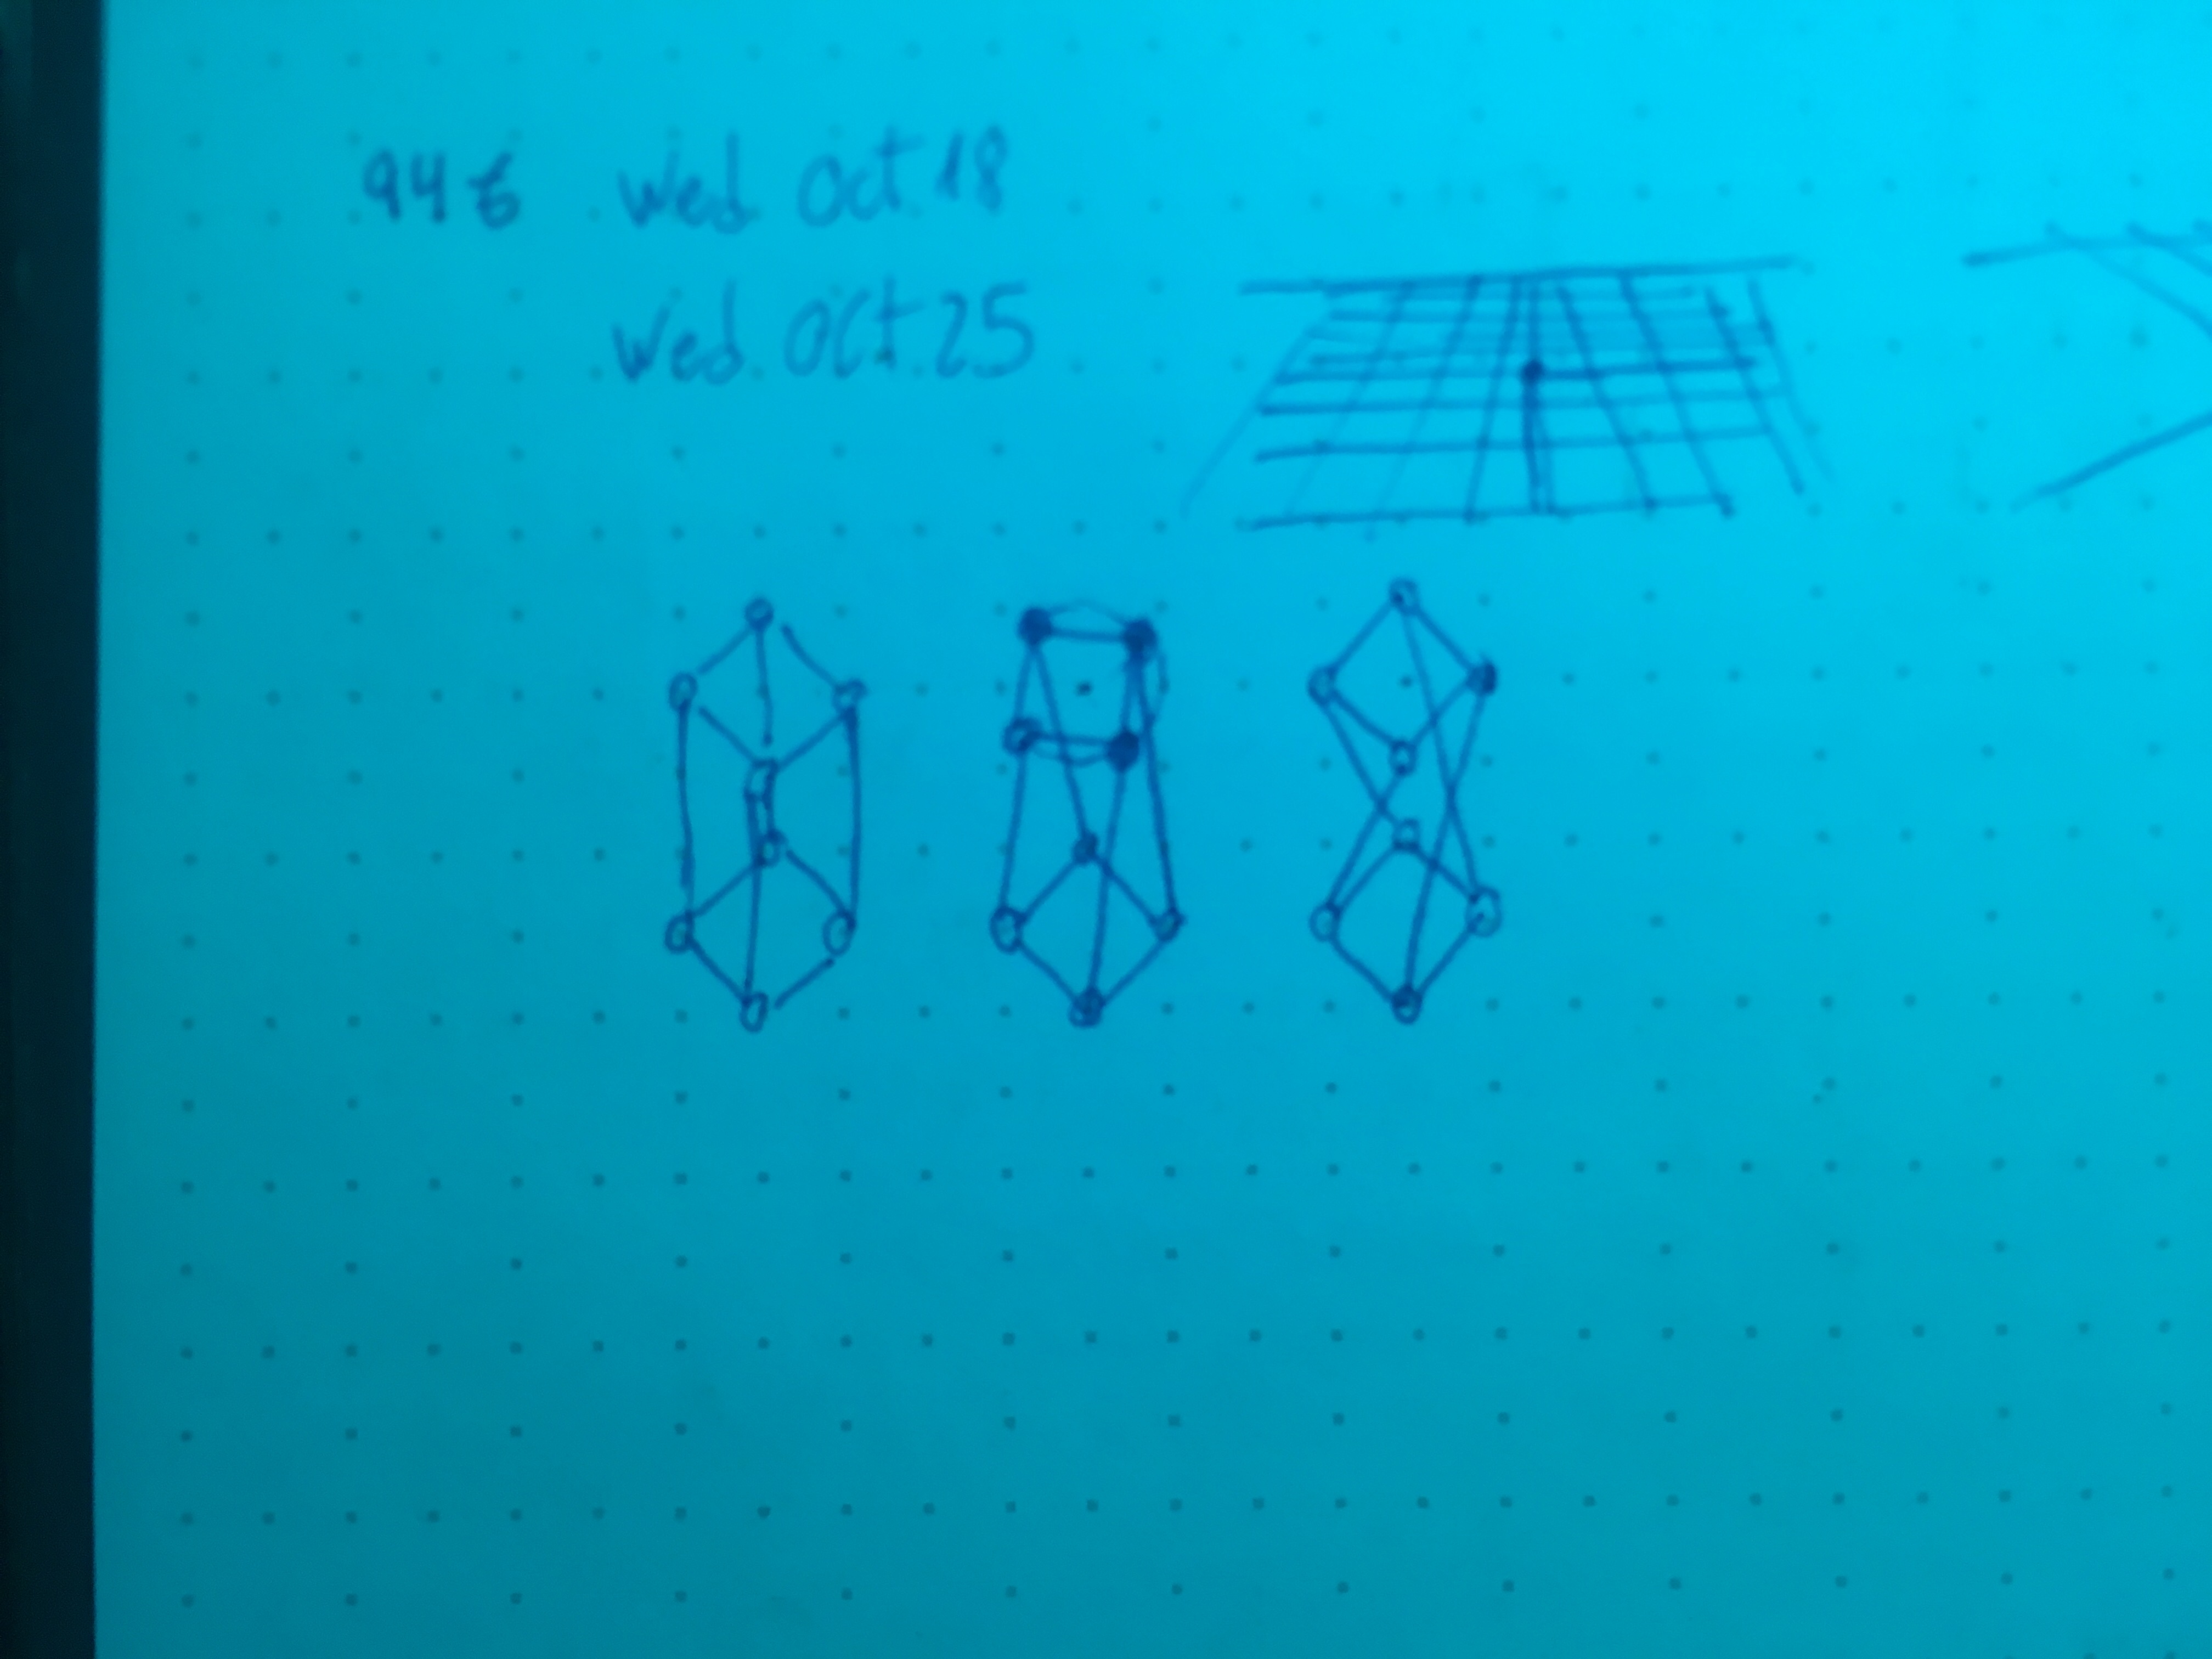 946 Wed Oct. 18
Wed. Oct. 25